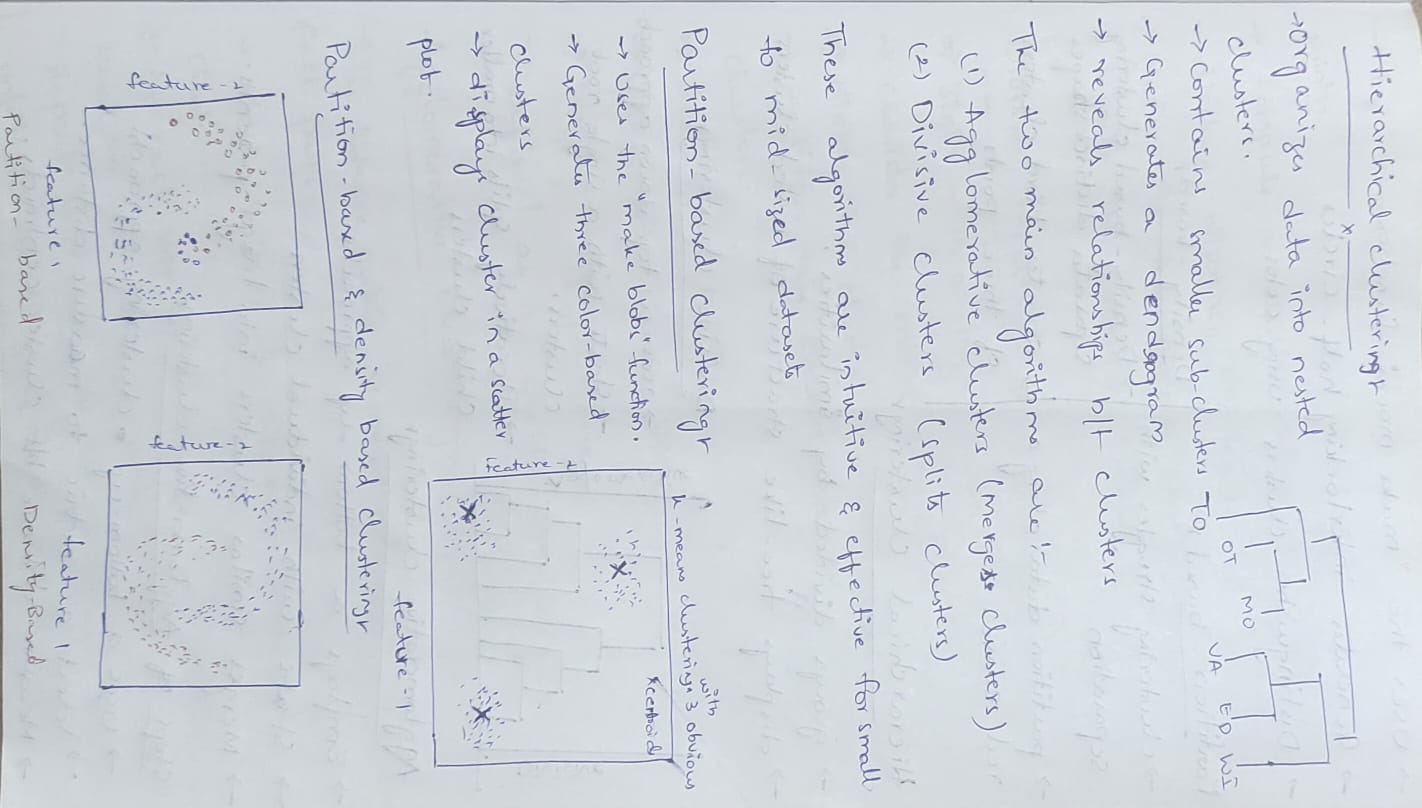 Hierarchical clustering
x
→ organizes data into nested
clusters.
→ Contains smaller sub-clusters
→ Generates a dendogram
→ reveals relationships b/t clusters
TO
OT
MO
VA
ED
WI
The two main algorithms are :-
(1) Agglomerative clusters (merges clusters)
(2) Divisive clusters (splits clusters)
These algorithms are intuitive & effective for small
to mid-sized datasets
Partition-based clustering
→ Uses the "make blobs" function.
→ Generates three color-based
clusters
→ displays cluster in a scatter
plot.
k-means clustering with 3 obvious
x centroid
feature-2
feature-1
Partition-based & density based clustering
feature-2
feature 1
Partition-based
feature-2
feature 1
Density-Based